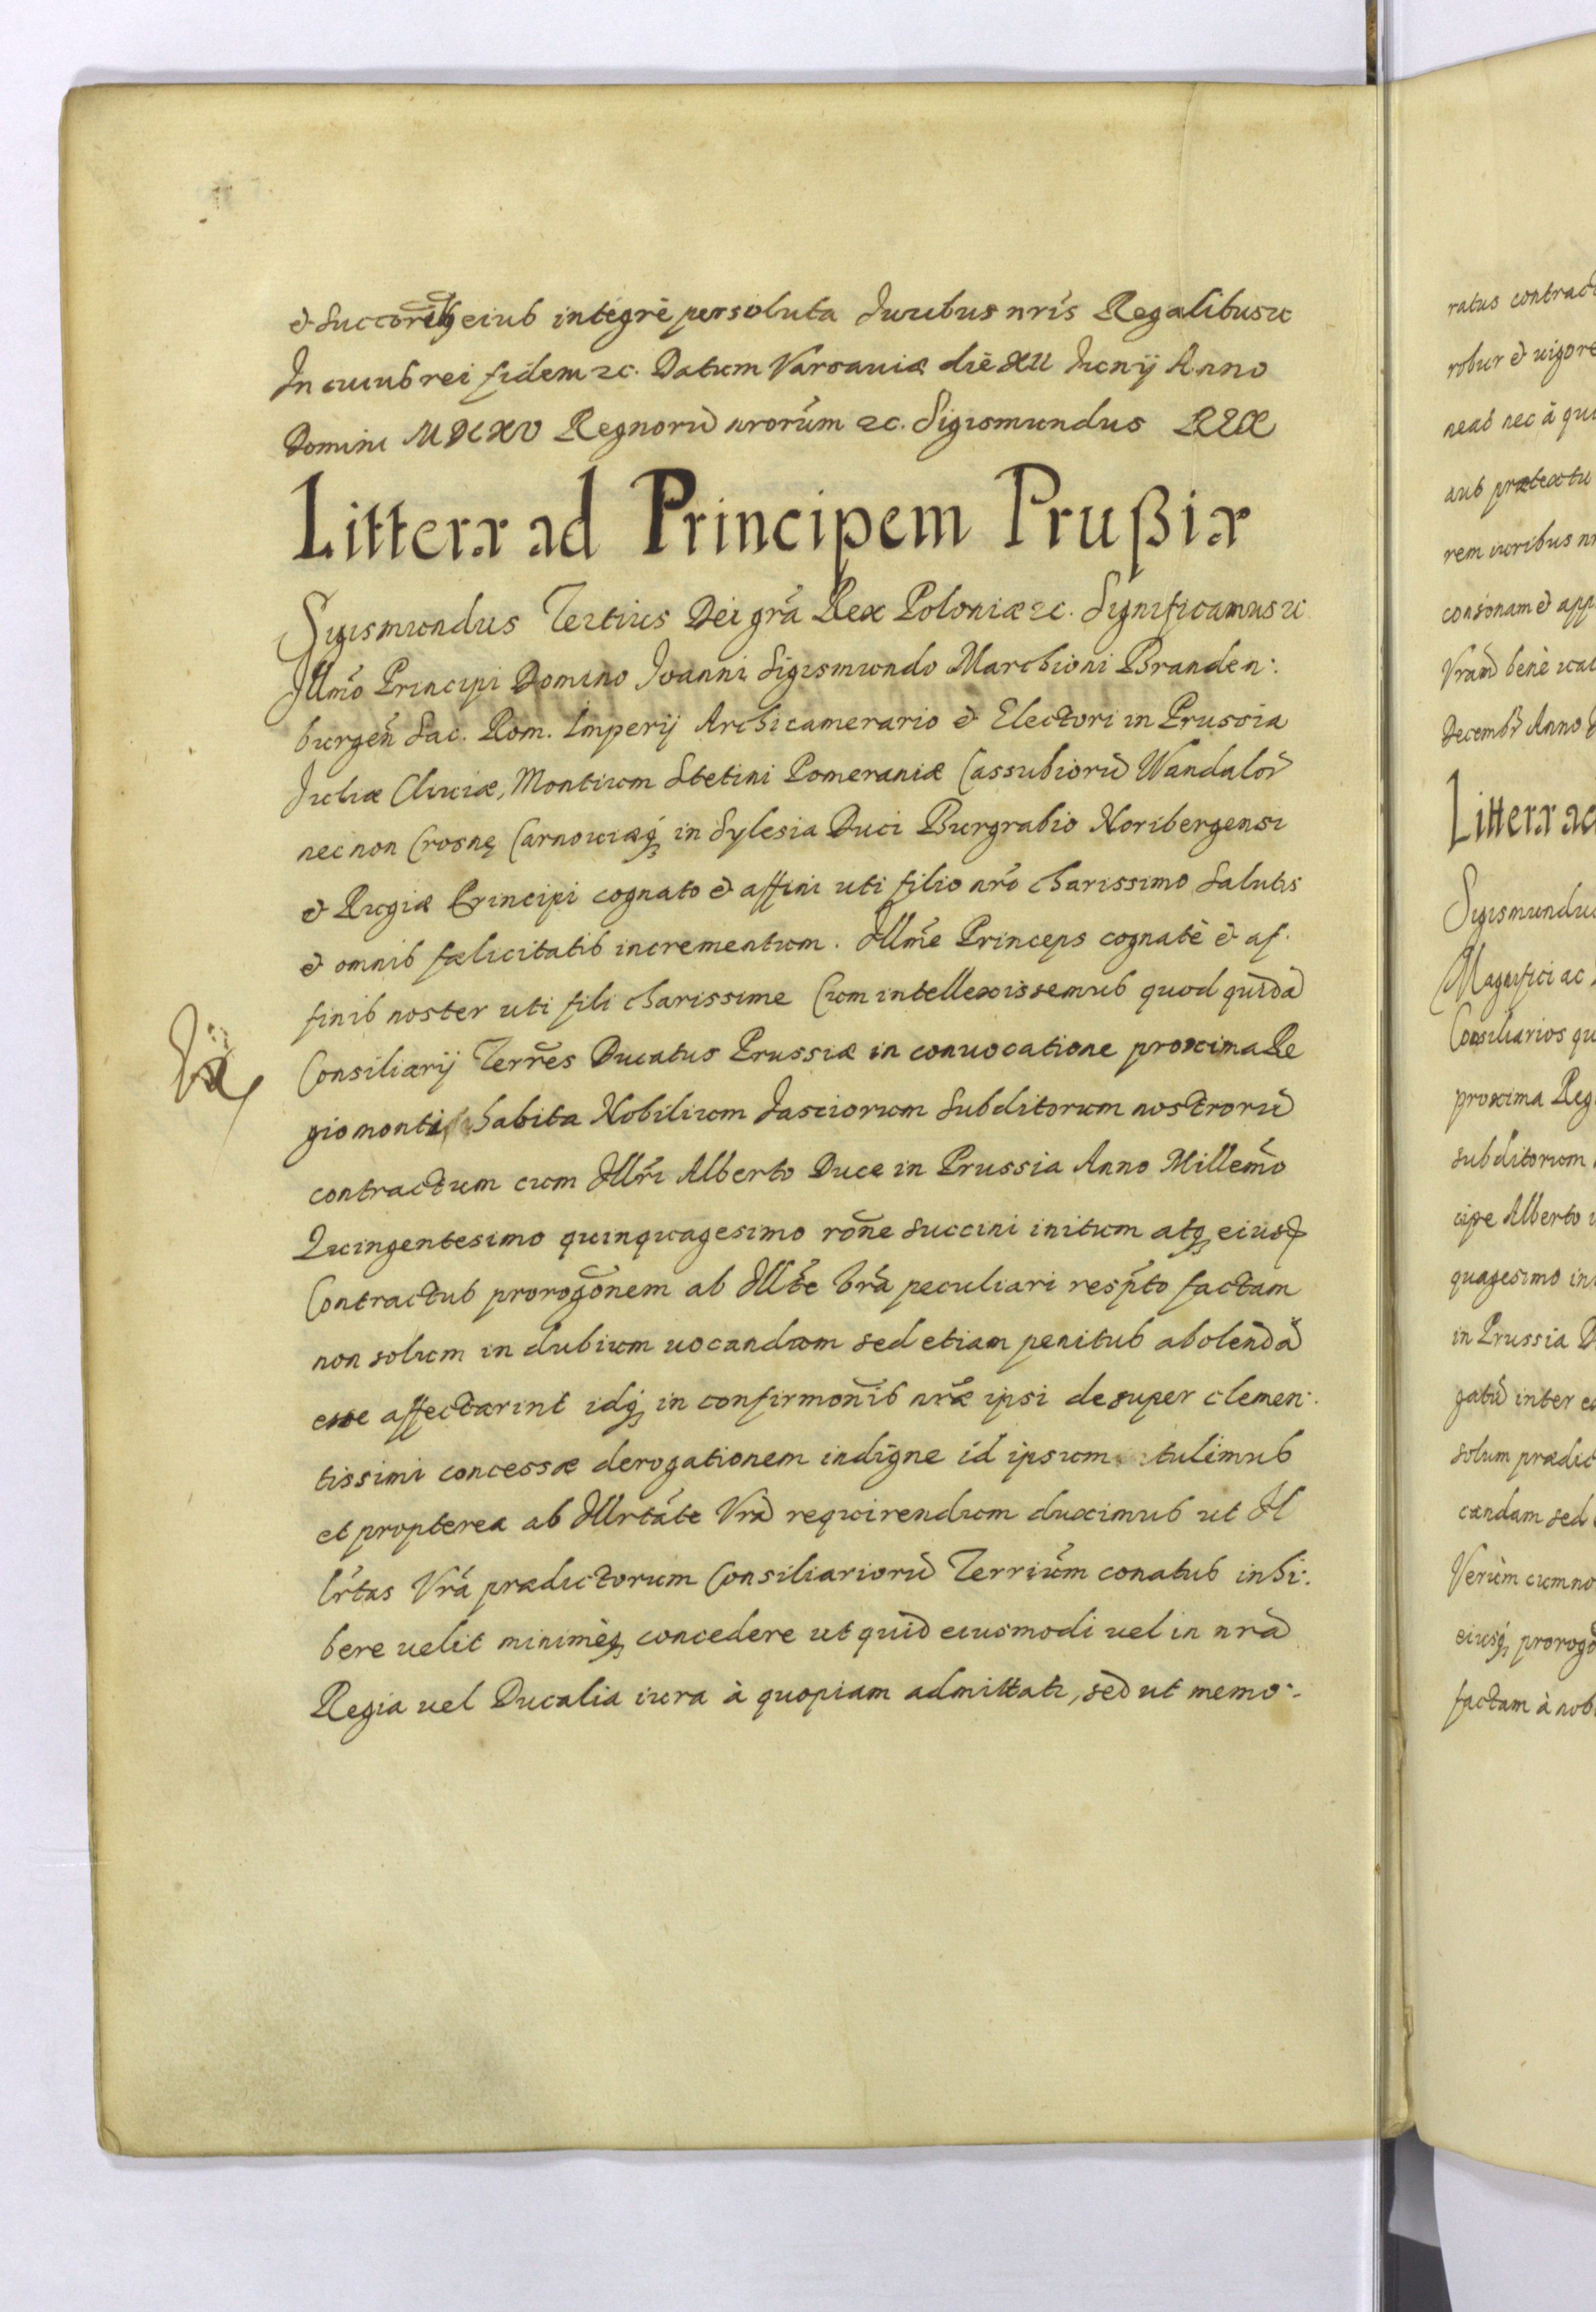 & Succorib9 eius integrè persoluta Iuribus nr̃is Regalibus ꝛc
In cuius rei fidem ꝛc. Datum Varsaviæ diē XII Iunij Anno
Domini MDCXV Regnorũ nrorũm ꝛc. Sigismundus REX
Litteræ ad Principem Prußiæ
Sigismundus Tertius Dei gr̃a Rex Poloniæ ꝛc. Significamus ꝛc
Illm̃o Principi Domino Ioanni Sigismundo Marchioni Branden:
burgeñ Sac. Rom. Imperij Archicamerario & Electori in Prussia
Iuliæ Cliuiæ, Montium Stetini Pomeraniæ Cassubiorũ Wandalor̃
nec non Crosnę Carnouiæq́; in Sylesia Duci Burgrabio Noribergensi
& Rugiæ Principi cognato & affini uti filio nr̃o charissimo Salutis
& omnis fælicitatis incrementum. Illm̃e Princeps cognatè & af:
finis noster uti fili charissime Cum intellexissemus quod quidã
Consiliarij Terr̃es Ducatus Prussiæ in conuocatione proxima Re
giomonti habita Nobilium Iasciorum Subditorum nostrorũ
contractum cum Illr̃i Alberto Duce in Prussia Anno Millem̃o
Quingentesimo quinquagesimo rõne Succini initum atq; eiusd
Contractus prorogõnem ab Illt̃e Vr̃a peculiari resp̃to factam
non solum in dubium uocandum sed etiam penitus abolendã
esse affectarint idq́; in confirmoñis nr̃æ ipsi desuper clemen:
tissimi concessæ derogationem indigne id ipsum tulimus
et propterea ab Illrtãte Vrã requirendum duximus ut Il
lr̃tas Vr̃a prædictorum Consiliariorũ Terriũm conatus inhi:
bere uelit minimèq; concedere ut quid eiusmodi uel in nrã
Regia uel Ducalia iura à quopiam admittatr, sed ut memo:
ratus contract
robur & uigore
neat nec à qui
aus prætextu
rem iuribus nr
consonam & app
Vram̃ benè ual
Decembr̃ Anno D
Litteræ ad
Sigismundus
Magnifici ac
Consiliarios qu
proxima Reg
subditorum
cipe Alberto
quagesimo ini
in Prussia D
gatũ inter e
solum prædic
candam sed
Verùm cum no
eiusq́; prorogõ
factam à nob